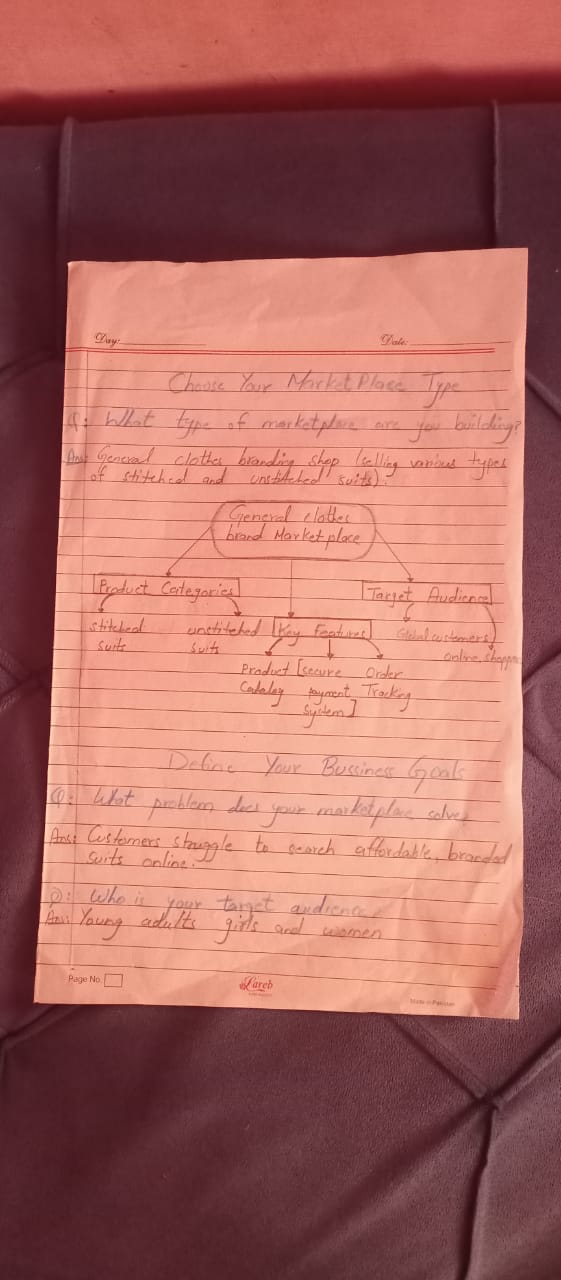 Day:
Date:
Choose Your MarketPlace Type
Q: What type of marketplace are you building?
Ans: General clothes branding shop (selling various types
of stitched and unstitched suits).
General clothes
brand Marketplace
Product Categories
Target Audience
stitched
suits
unstitched
suits
Key Features
Global customers
online, shoppers
Product
Catalog
[secure
payment
System]
Order
Tracking
Define Your Bussiness Goals
Q: What problem does your marketplace solve
Ans: Customers struggle to search affordable, branded
suits online.
Q: Who is your target audience
Ans: Young adults girls and women
Page No.
Lareb
Made in Pakistan